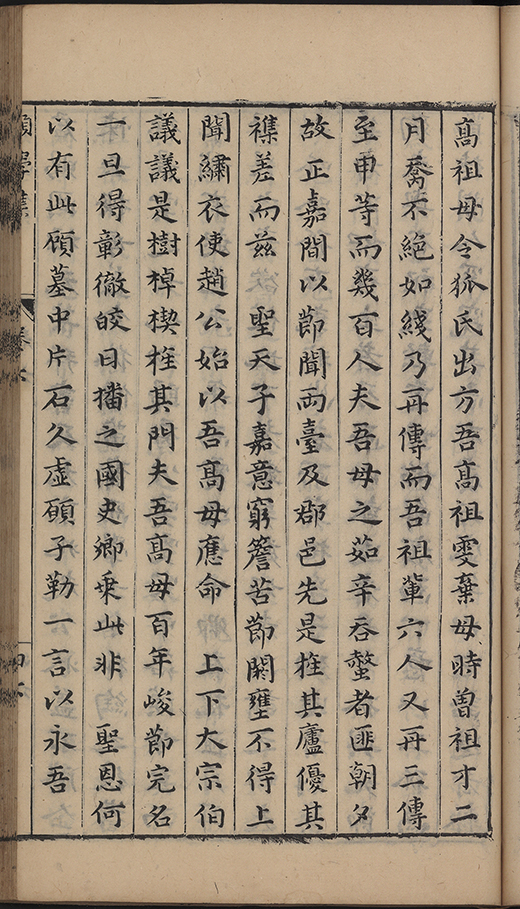 高祖母令狐氏出方吾高祖雯棄母時曾祖才二
月喬不絶如綫乃再傳而吾祖輩六人又再三傳
至甲等而幾百人夫吾母之茹辛吞螫者匪朝夕
故正嘉間以節聞兩臺及郡邑先是旌其廬優其
襍差而兹 聖天子嘉意窮簷苦節閼壅不得上
聞繡衣使趙公始以吾髙母應命 上下大宗伯
議議是樹棹楔旌其門夫吾髙母百年峻節完名
一旦得彰徹皎日播之國史鄉乗此非 聖恩何
以有此顧墓中片石久虚願子勒一言以永吾